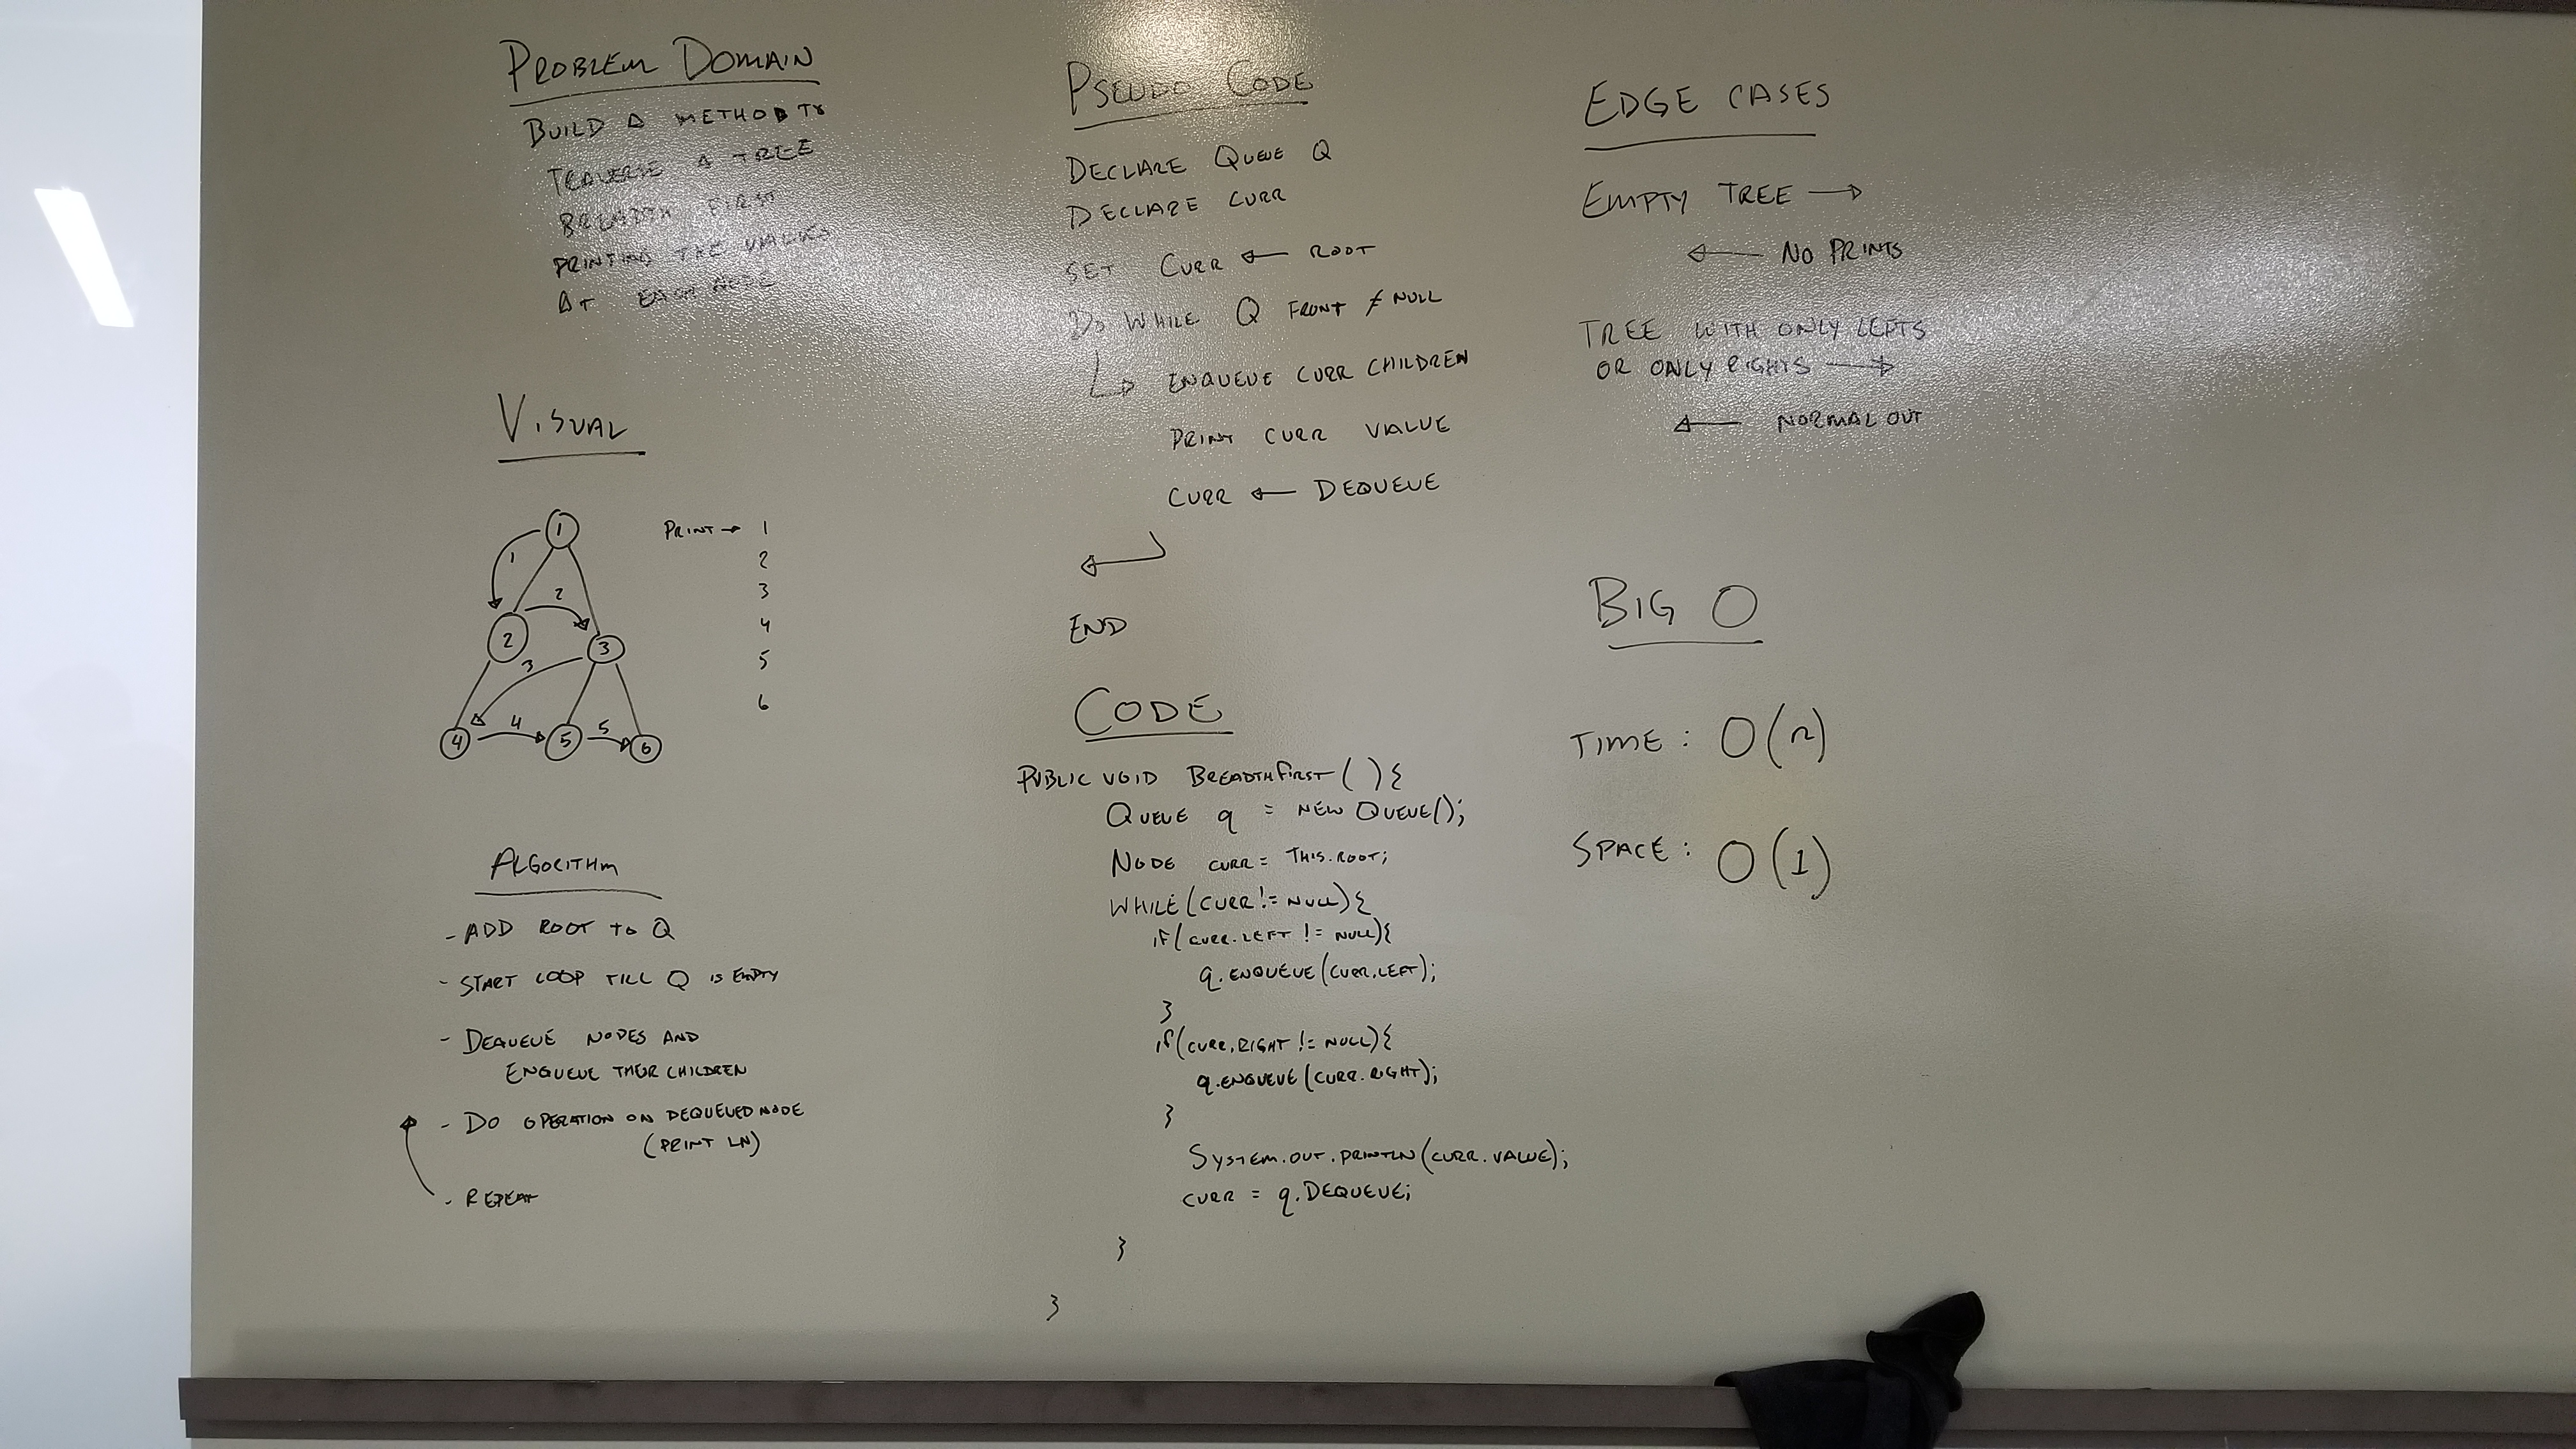 PROBLEM DOMAIN
BUILD A METHOD TO
TRAVERSE A TREE
BREADTH FIRST
PRINTING THE VALUES
AT EACH NODE
VISUAL
1
1
2
2
3
3
4
4
5
5
6
PRINT → 1
2
3
4
5
6
ALGORITHM
- ADD ROOT TO Q
- START LOOP TILL Q IS EMPTY
- DEQUEUE NODES AND
ENQUEUE THEIR CHILDREN
- DO OPERATION ON DEQUEUED NODE
(PRINT LN)
- REPEAT
PSEUDO CODE
DECLARE QUEUE Q
DECLARE CURR
SET CURR ← ROOT
DO WHILE Q FRONT ≠ NULL
↳ ENQUEUE CURR CHILDREN
PRINT CURR VALUE
CURR ← DEQUEUE
END
CODE
PUBLIC VOID BREADTHFIRST( ){
QUEUE q = NEW QUEUE();
NODE CURR = THIS.ROOT;
WHILE(CURR != NULL){
if(CURR.LEFT != NULL){
q.ENQUEUE(CURR.LEFT);
}
if(CURR.RIGHT != NULL){
q.ENQUEUE(CURR.RIGHT);
}
SYSTEM.OUT.PRINTLN(CURR.VALUE);
CURR = q.DEQUEUE;
}
}
EDGE CASES
EMPTY TREE →
← NO PRINTS
TREE WITH ONLY LEFTS
OR ONLY RIGHTS →
← NORMAL OUT
BIG O
TIME: O(n)
SPACE: O(1)